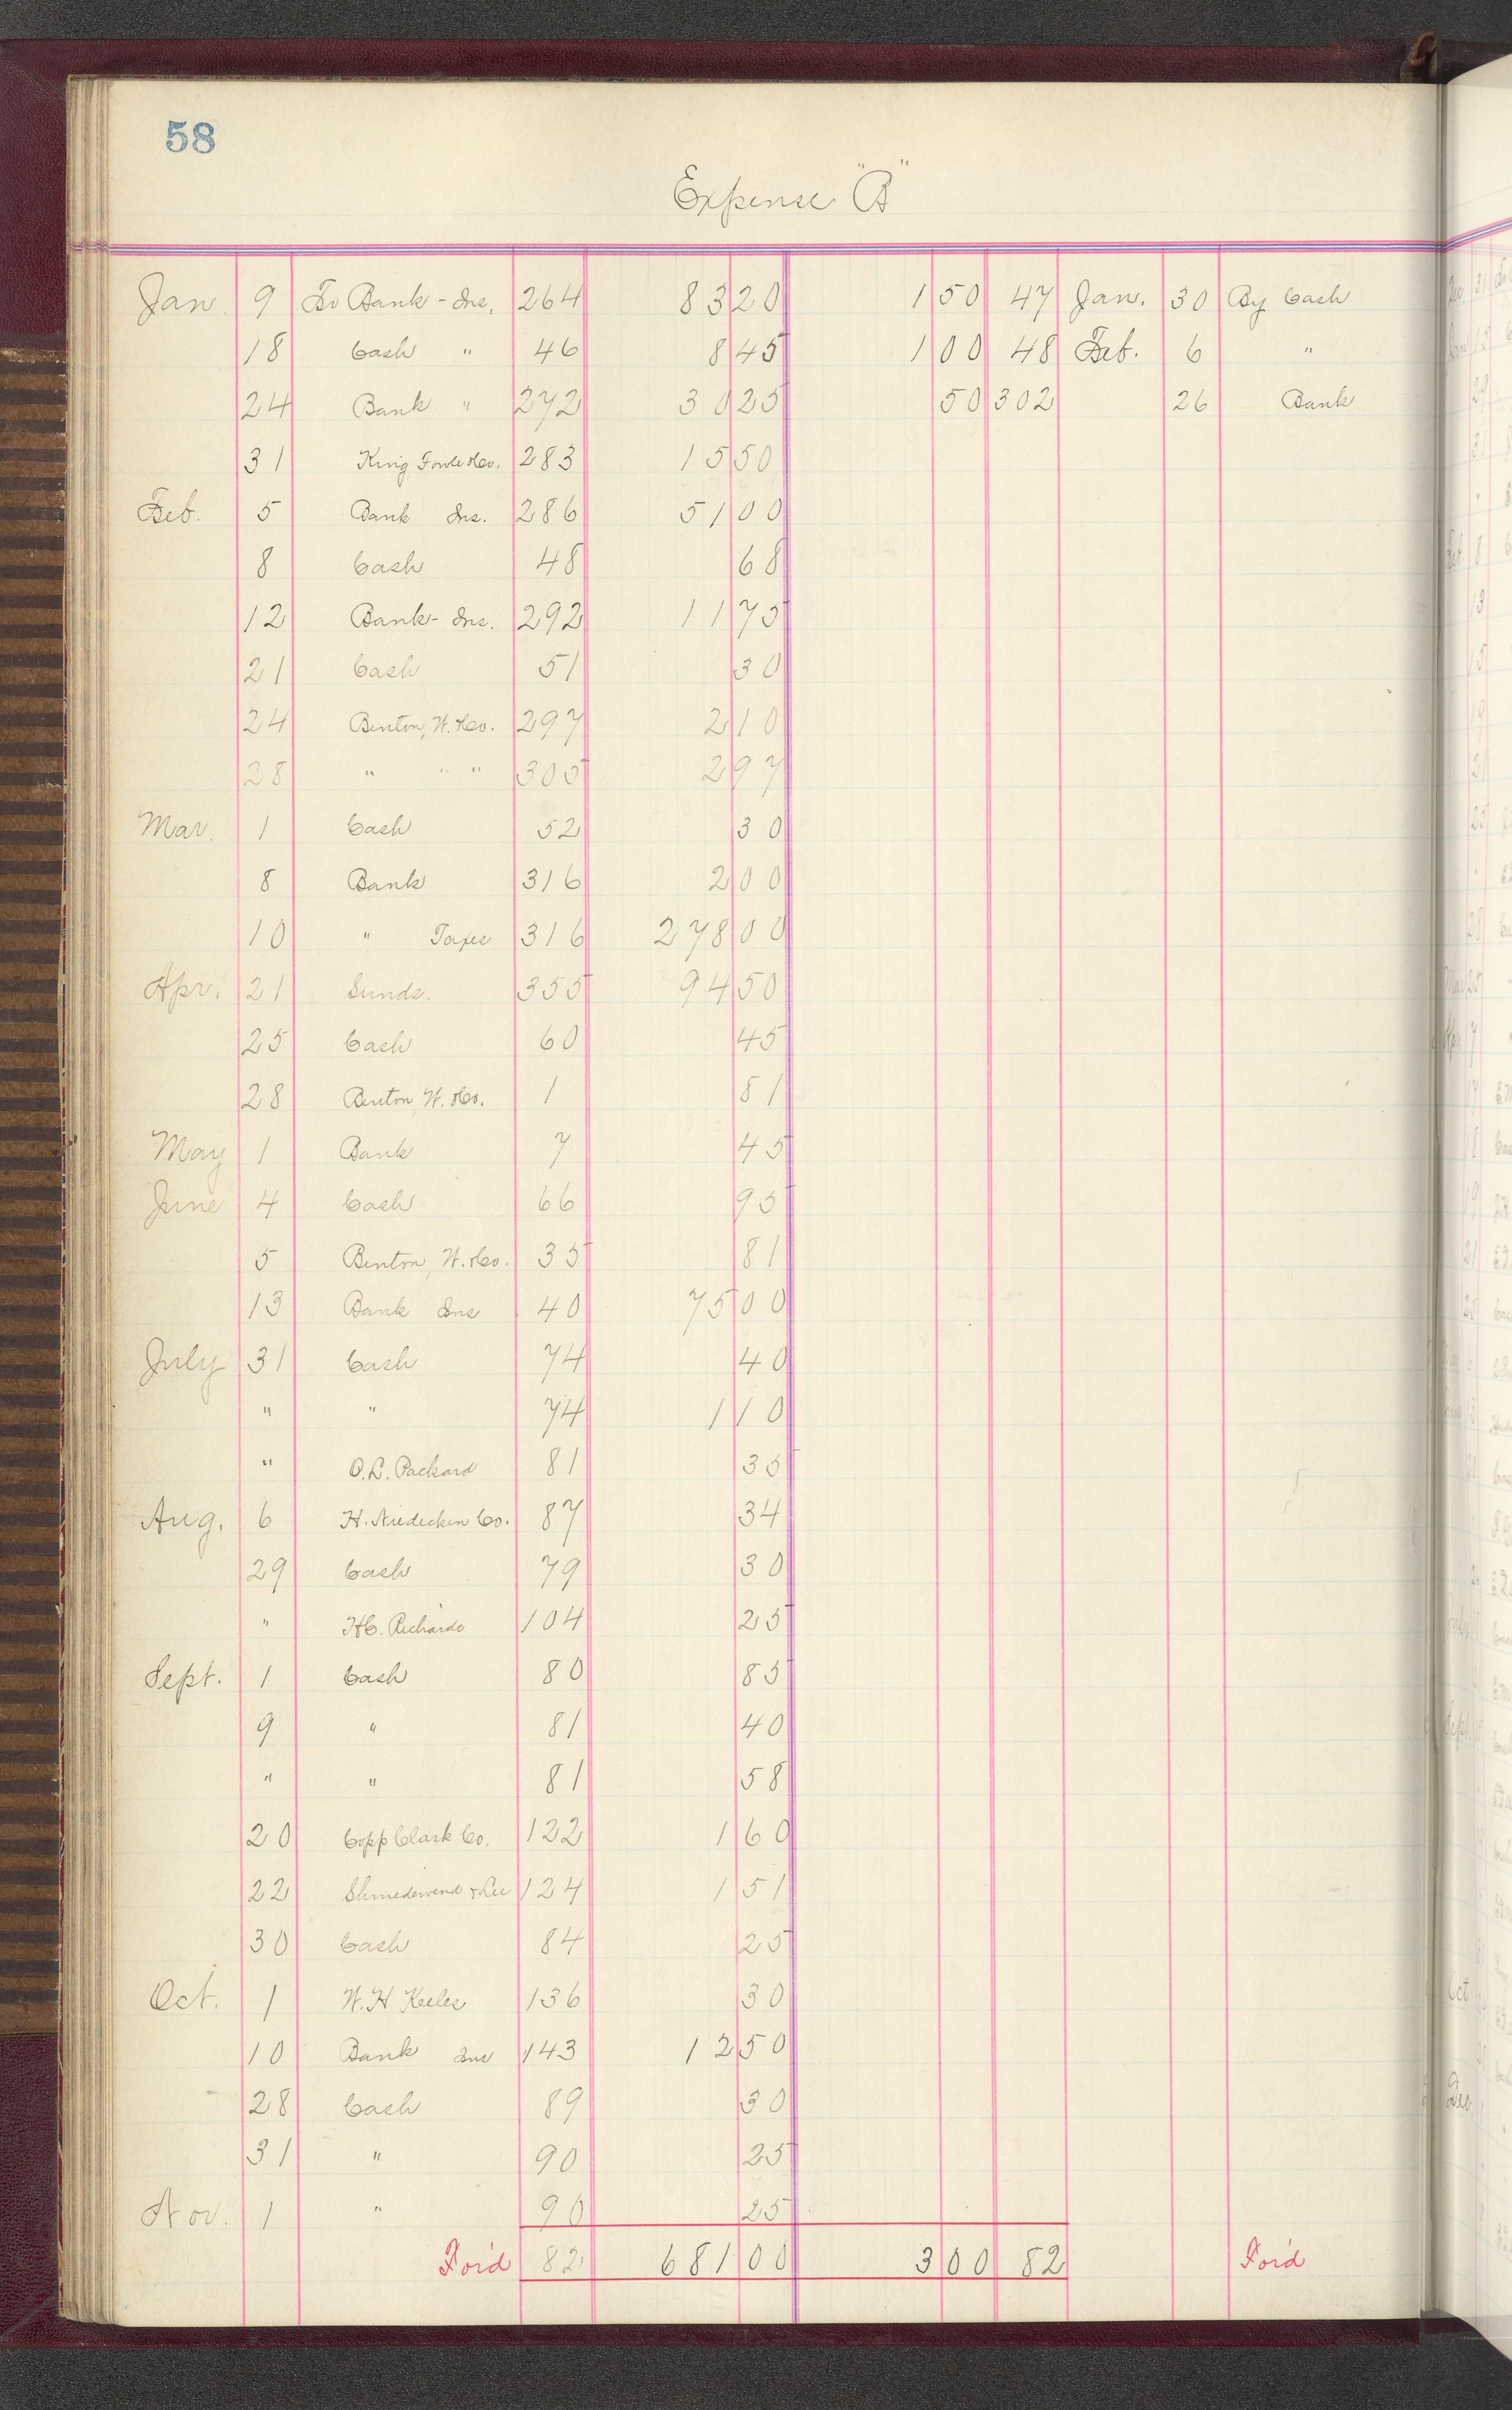 58
Expense "A"
Jan. 9 To Bank - Ins. 264 83 20 1 50 47 Jan. 30 By Cash
18 Cash " 46 8 45 1 00 48 Feb. 6 "
24 Bank " 272 30 25 50 302 26 Bank
31 King, Fowle & Co. 283 15 50
Feb. 5 Bank Ins. 286 51 00
8 Cash 48 68
12 Bank - Ins. 292 11 75
21 Cash 51 30
24 Benton, W. & Co. 297 2 10
28 " " " 305 2 97
Mar. 1 Cash 52 30
8 Bank 316 2 00
10 " Taxes 316 278 00
Apr. 21 Sunds. 355 94 50
25 Cash 60 45
28 Benton W. & Co. 1 81
May 1 Bank 7 45
June 4 Cash 66 95
5 Benton, W. & Co. 35 81
13 Bank Ins 40 75 00
July 31 Cash 74 40
" " 74 1 10
" O.L. Packard 81 35
Aug. 6 H. Niedecken Co. 87 34
29 Cash 79 30
" H.C. Richards 104 25
Sept. 1 Cash 80 85
9 " 81 40
" " 81 58
20 Copp Clark Co. 122 1 60
22 & Lee 124 1 51
30 Cash 84 25
Oct. 1 W.H Keeler 136 30
10 Bank Ins 143 12 50
28 Cash 89 30
31 " 90 25
Nov. 1 " 90 25
For'd 82 681 00 3 00 82 For'd